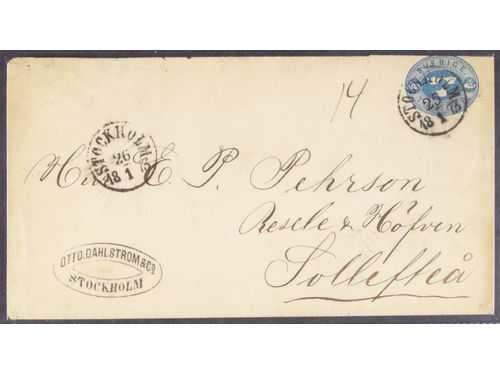 SVERIGE
14
STOCKHOLM
26
18 1
Herr E. P. Pehrson
Resele & Höfven
Sollefteå
OTTO.DAHLSTROM & Co
STOCKHOLM